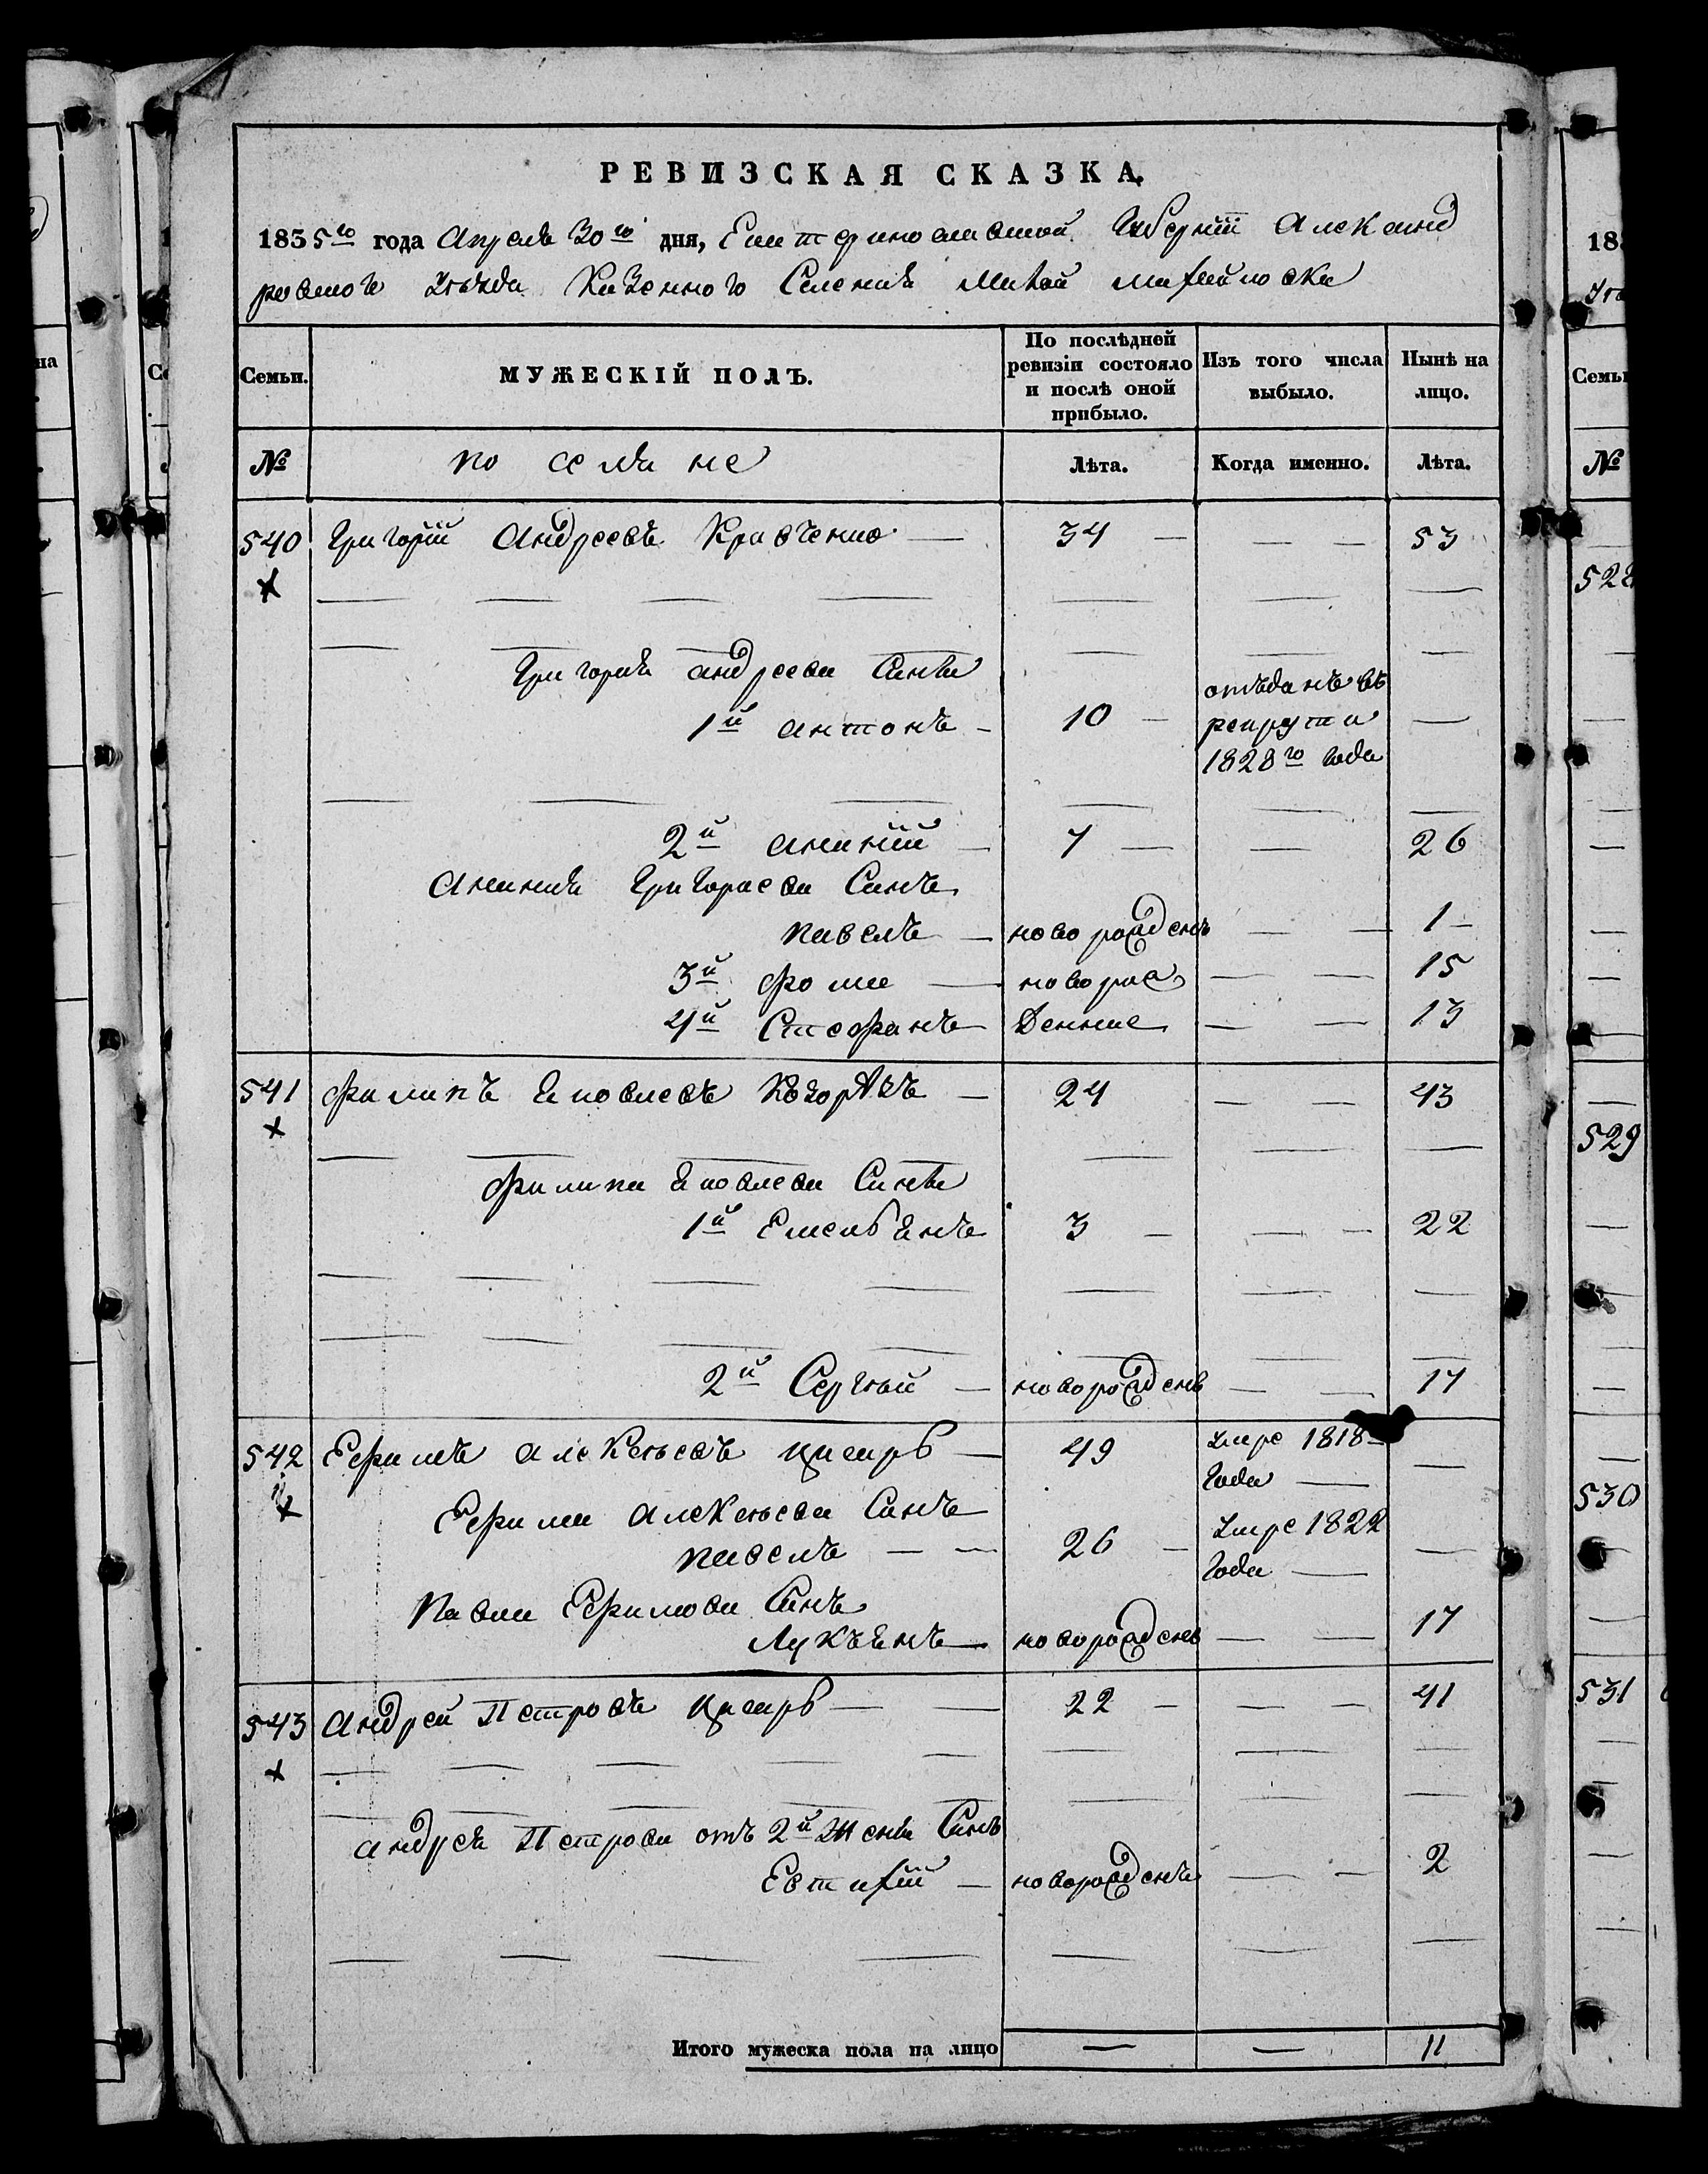 РЕВИЗСКАЯ СКАЗКА.
1835го года Апреля 30го дня, Екатеринославской Губернiи Александ
ровского Уѣзда Казенного Селенiя Малой Михайловки
Семьи. МУЖЕСКІЙ ПОЛЪ. По послѣдней ревизіи состояло и послѣ оной прибыло. Изъ того числа выбыло. Нынѣ на лицо.
№ Лѣта. Когда именно. Лѣта.
540 Григорій Андреевъ Кравченко — 34 — — — 53
Григорія андреева Сини
1й антонъ — 10 — отъданъ въ рекрути 1828го года —
2й ананій — 7 — — 26
Ананія Григориева Синъ
павелъ — новорожденъ — — 1 —
3й фома — новорож — — 15
4й Стефанъ —Денние — — 13
541 филипъ Яковлевъ — 24 — — 43
филипа Яковлева Сини
1й Емельянъ 3 — — — 22
2й Сергѣй — новорожденъ — — 17
542 Ефимъ алексѣевъ — 49 Умре 1818 Года — —
Ефима алексѣева Синъ
павелъ — — 26 — Умре 1822 Года — —
Павла Ефимова Синъ
Лукъянъ — новорожденъ — — 17
543 андрей Петровъ — — 22 — — — 41
андрея Петрова отъ 2й Жени Синъ
Евтифій — новорожденъ — — 2
Итого мужеска пола на лицо — — 11
18
Семьи
№
528
529
530
531